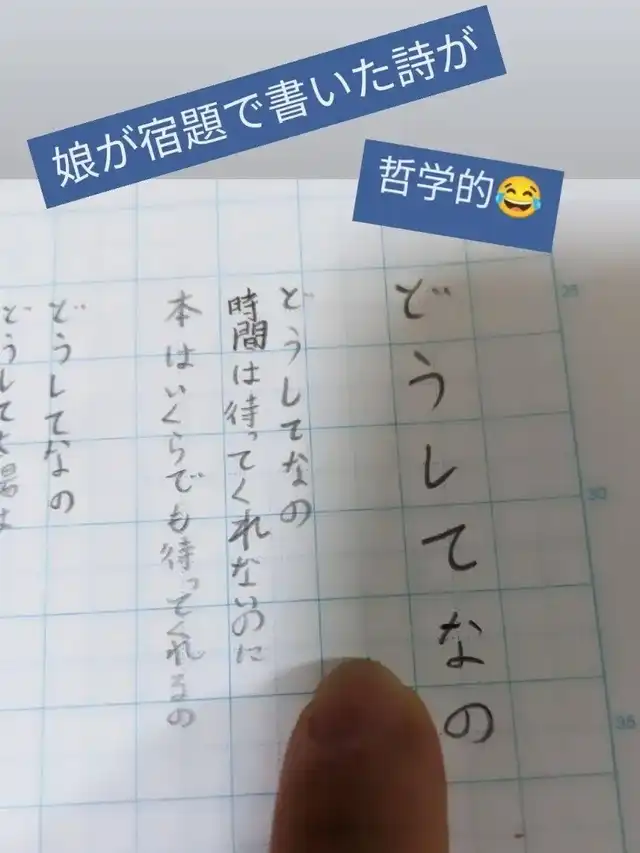 娘が宿題で書いた詩が
哲学的😂
どうしてなの
どうしてなの
時間は待ってくれないのに
本はいくらでも待ってくれるの
どうしてなの
どうして太陽は
25
30
35